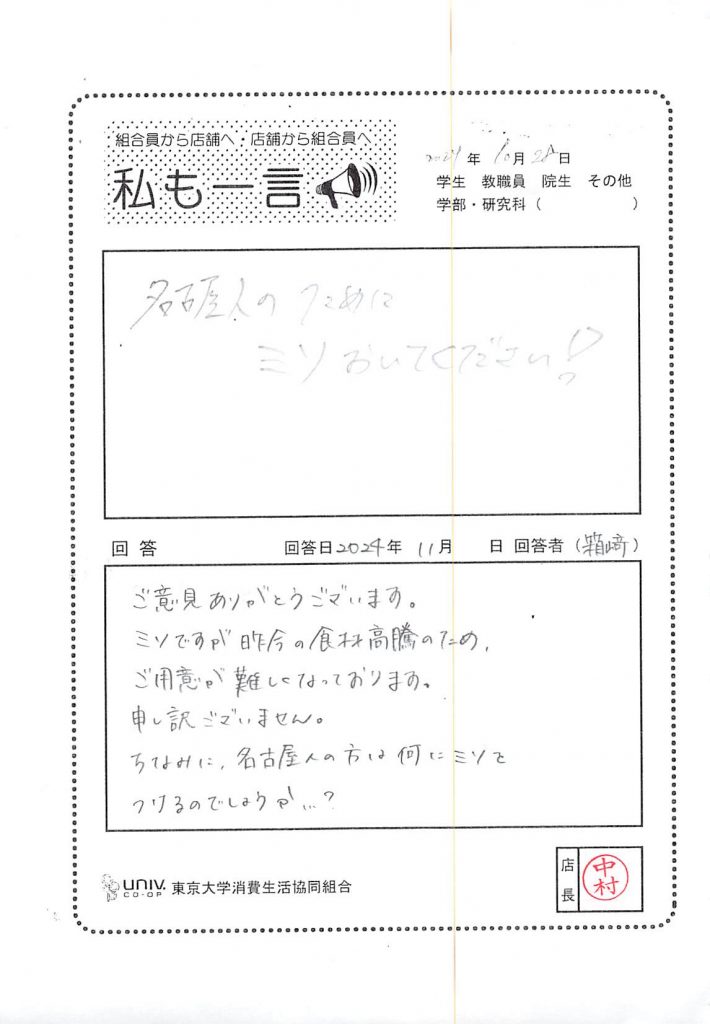 組合員から店舗へ・店舗から組合員へ
私も一言
2024年10月28日
学生 教職員 院生 その他
学部・研究科( )
名古屋人のために
ミソおいてください!?
回答 回答日2024年 11月 日 回答者(箱﨑)
ご意見ありがとうございます。
ミソですが昨今の食材高騰のため、
ご用意が難しくなっております。
申し訳ございません。
ちなみに、名古屋人の方は何にミソを
つけるのでしょうか…?
店長
中村
UNIV. CO-OP 東京大学消費生活協同組合